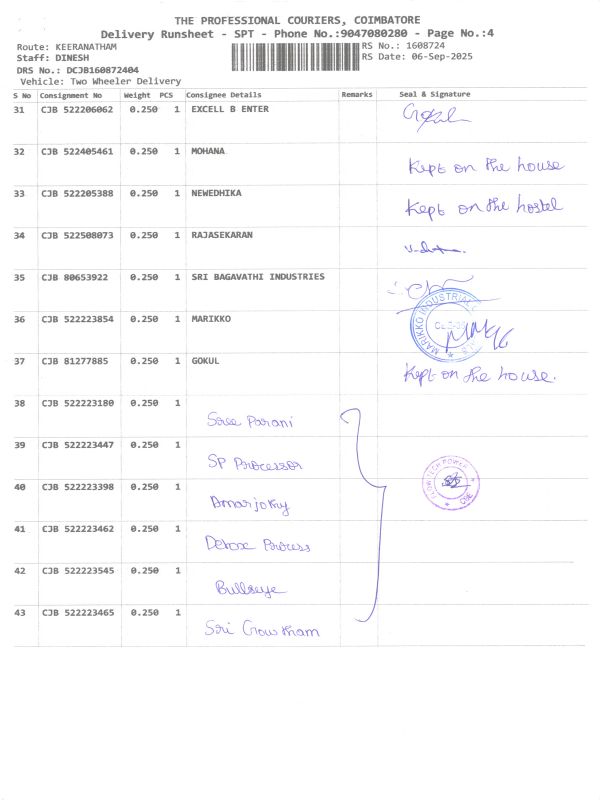 THE PROFESSIONAL COURIERS, COIMBATORE
Delivery Runsheet - SPT - Phone No.:9047080280 - Page No.:4
Route: KEERANATHAM RS No.: 1608724
Staff: DINESH RS Date: 06-Sep-2025
DRS No.: DCJB160872404
Vehicle: Two Wheeler Delivery
S No Consignment No Weight PCS Consignee Details Remarks Seal & Signature
31 CJB 522206062 0.250 1 EXCELL B ENTER
32 CJB 522405461 0.250 1 MOHANA
Kept on the house
33 CJB 522205388 0.250 1 NEWEDHIKA
Kept on the hostel
34 CJB 522508073 0.250 1 RAJASEKARAN
35 CJB 80653922 0.250 1 SRI BAGAVATHI INDUSTRIES
36 CJB 522223854 0.250 1 MARIKKO
MARIKKO INDUSTRIAL
37 CJB 81277885 0.250 1 GOKUL
Kept on the house.
38 CJB 522223180 0.250 1
Sree Parani
39 CJB 522223447 0.250 1
SP Processor
FLOWTECH POWER
CBE
40 CJB 522223398 0.250 1
Amarjoky
41 CJB 522223462 0.250 1
Detox Process
42 CJB 522223545 0.250 1
Bullseye
43 CJB 522223465 0.250 1
Sri Gowtham